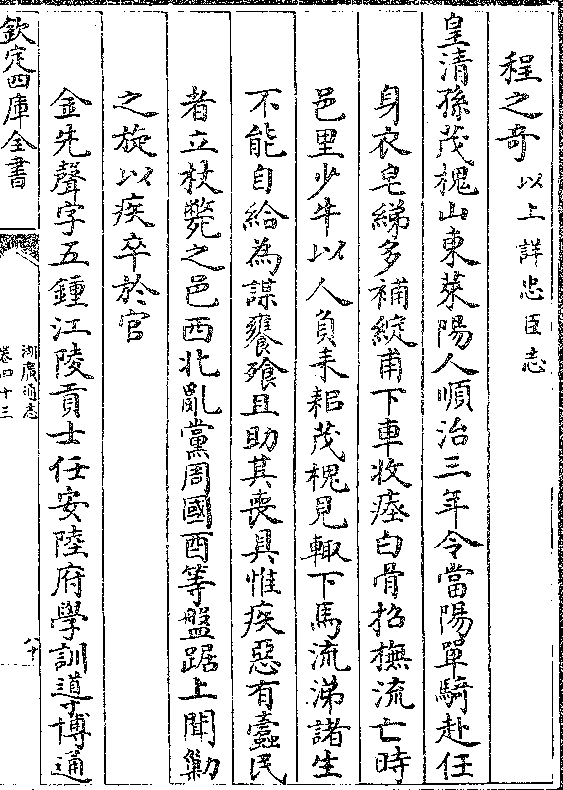 程之奇以上詳忠臣志
皇清孫茂槐山東萊陽人順治三年令當陽單騎赴任
身衣皂綈多補綻甫下車收瘞白骨招撫流亡時
邑里少牛以人負耒耜茂槐見輙下馬流涕諸生
不能自給為謀饔飱且助其喪具惟疾惡有蠧民
者立杖斃之邑西北亂黨周國酉等盤踞上聞勦
之旋以疾卒於官
金先聲字五鍾江陵貢士任安陸府學訓導博通
欽定四庫全書
湖廣通志
卷四十三
八十